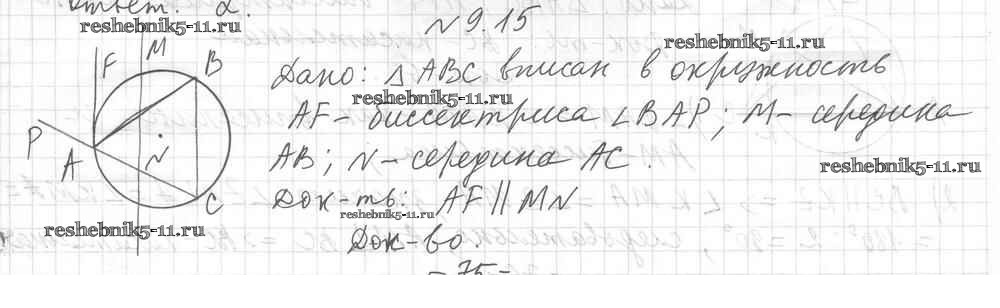 Ответ: 2.
№ 9.15
reshebnik5-11.ru
reshebnik5-11.ru
Дано: △ ABC вписан в окружность
reshebnik5-11.ru
AF - биссектриса ∠BAP; M - середина
AB; N - середина AC.
reshebnik5-11.ru
Док-ть: AF || MN
reshebnik5-11.ru
reshebnik5-11.ru
Док-во:
- 75 -
F
M
B
P
A
N
C